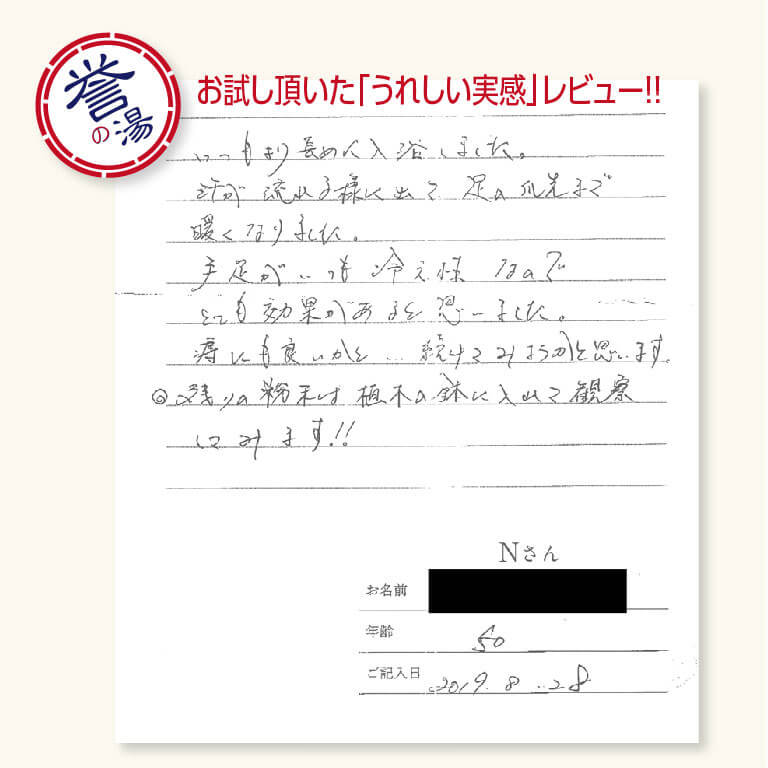 誉の湯
お試し頂いた「うれしい実感」レビュー!!
いつもより長めに入浴しました。
汗が流れる様に出て足の爪先まで
暖くなりました。
手足がいつも冷え性なので
とても効果があると思いました。
にも良いかと…続けてみようかと思います。
◎残りの粉末は植木の鉢に入れて観察
してみます!!
Nさん
お名前
年齢 50
ご記入日 2019.8.28